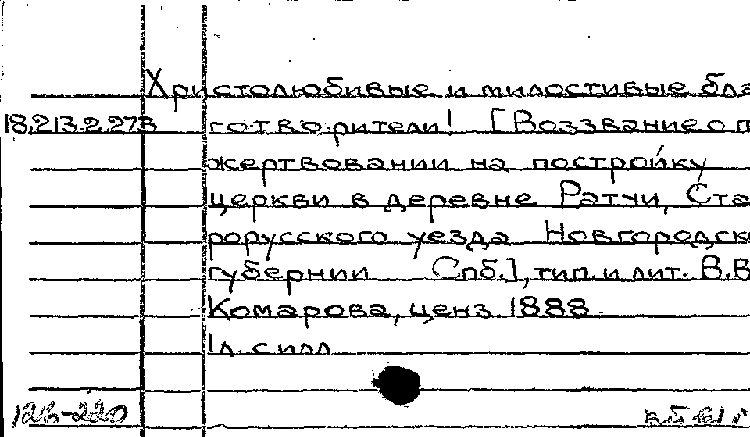 Христолюбивые и милостивые бла
18.213.2.273 готворители! [Воззвание о п
жертвовании на постройку
церкви в деревне Ратчи, Ста
рорусского уезда Новгородск
губернии Спб.], тип. и лит. В.В
Комарова, ценз. 1888
1л. с илл